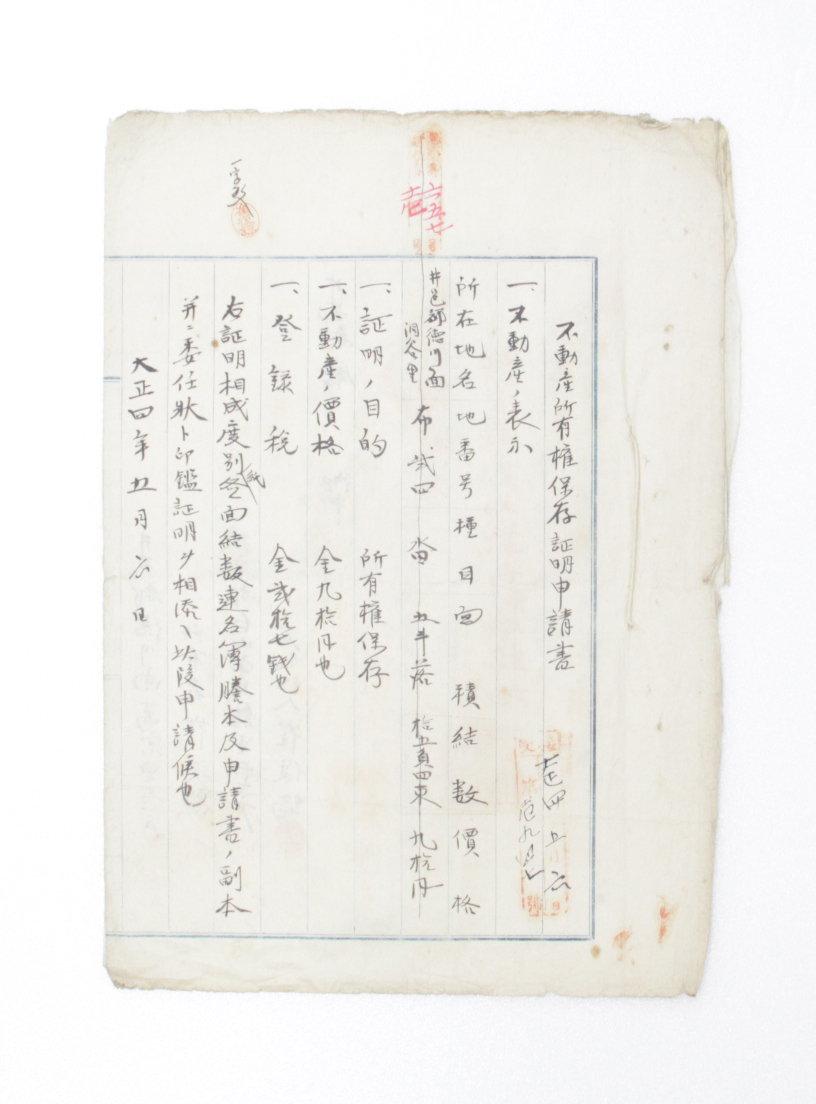 不動産所有權保存証明申請書
一、不動産ノ表示
所在地名地番号種目面積結数價格
井邑郡德川面
布 貳四 畓 五斗落 拾五負四束 九拾円
一、証明ノ目的 所有權保存
一、不動産ノ價格 金九拾円也
一、登録税 金貳拾七錢也
右証明相成度別紙面結数連名簿謄本及申請書ノ副本
并ニ委任狀ト印鑑証明ヲ相添ヘ此段申請候也
大正四年五月六日